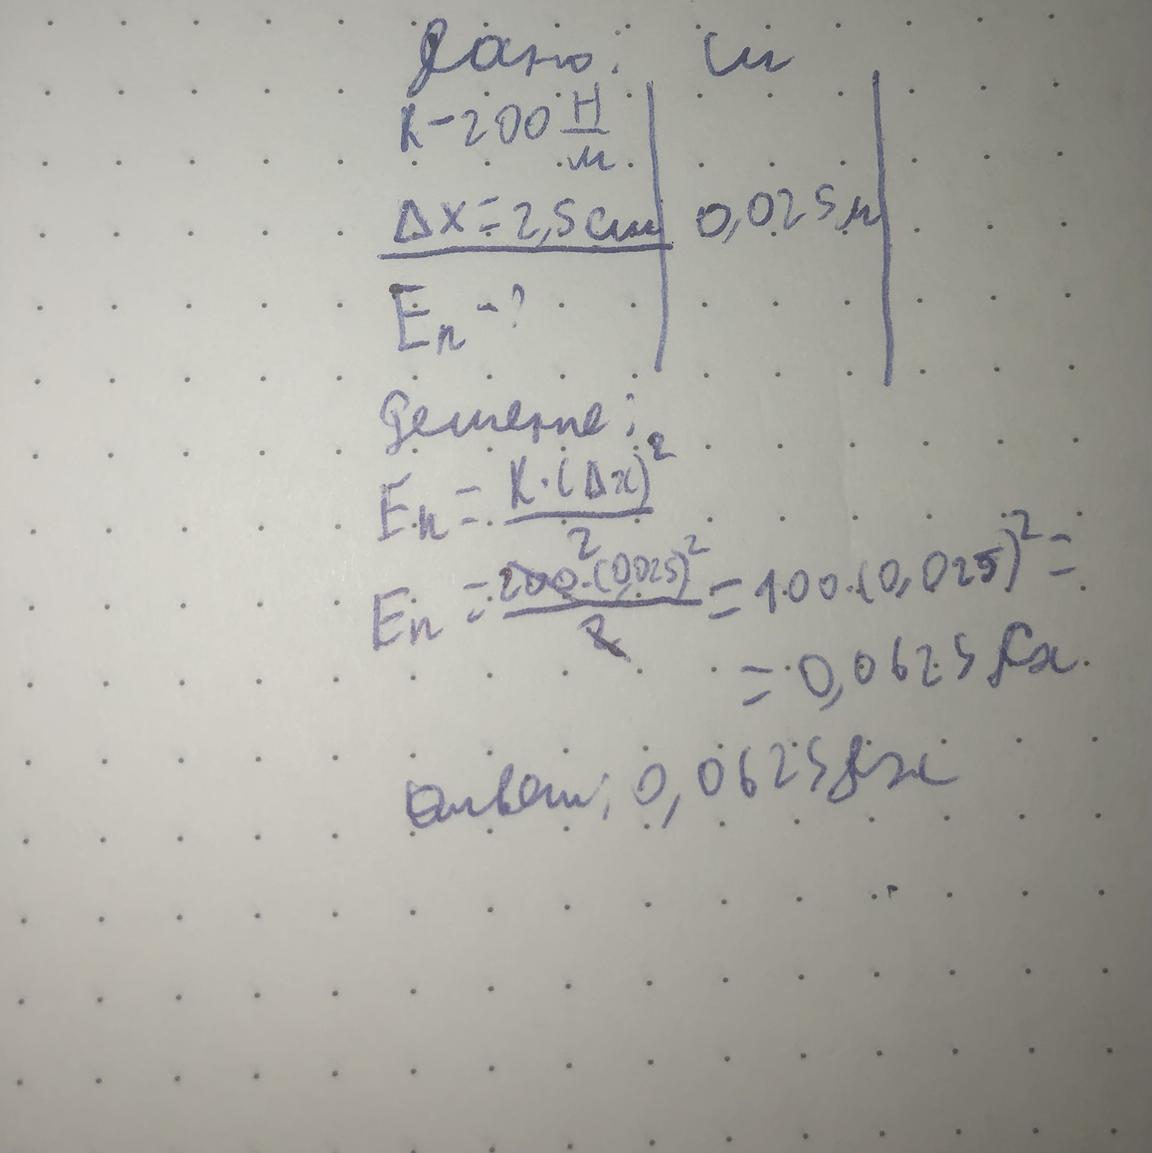 Дано: СИ
K-200 Н/м
Δx=2,5см 0,025м
Eп-?
Решение:
Eп = K·(Δx)²/2
Eп = 200·(0,025)²/2 = 100·(0,025)² =
= 0,0625 Дж.
Ответ: 0,0625 Дж